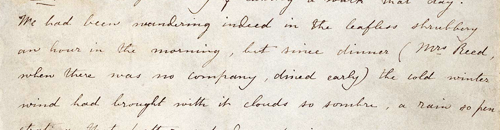 of taking a walk that day.
We had been wandering indeed in the leafless shrubbery
an hour in the morning, but since dinner (Mrs Reed,
when there was no company, dined early) the cold winter
wind had brought with it clouds so sombre, a rain so pen